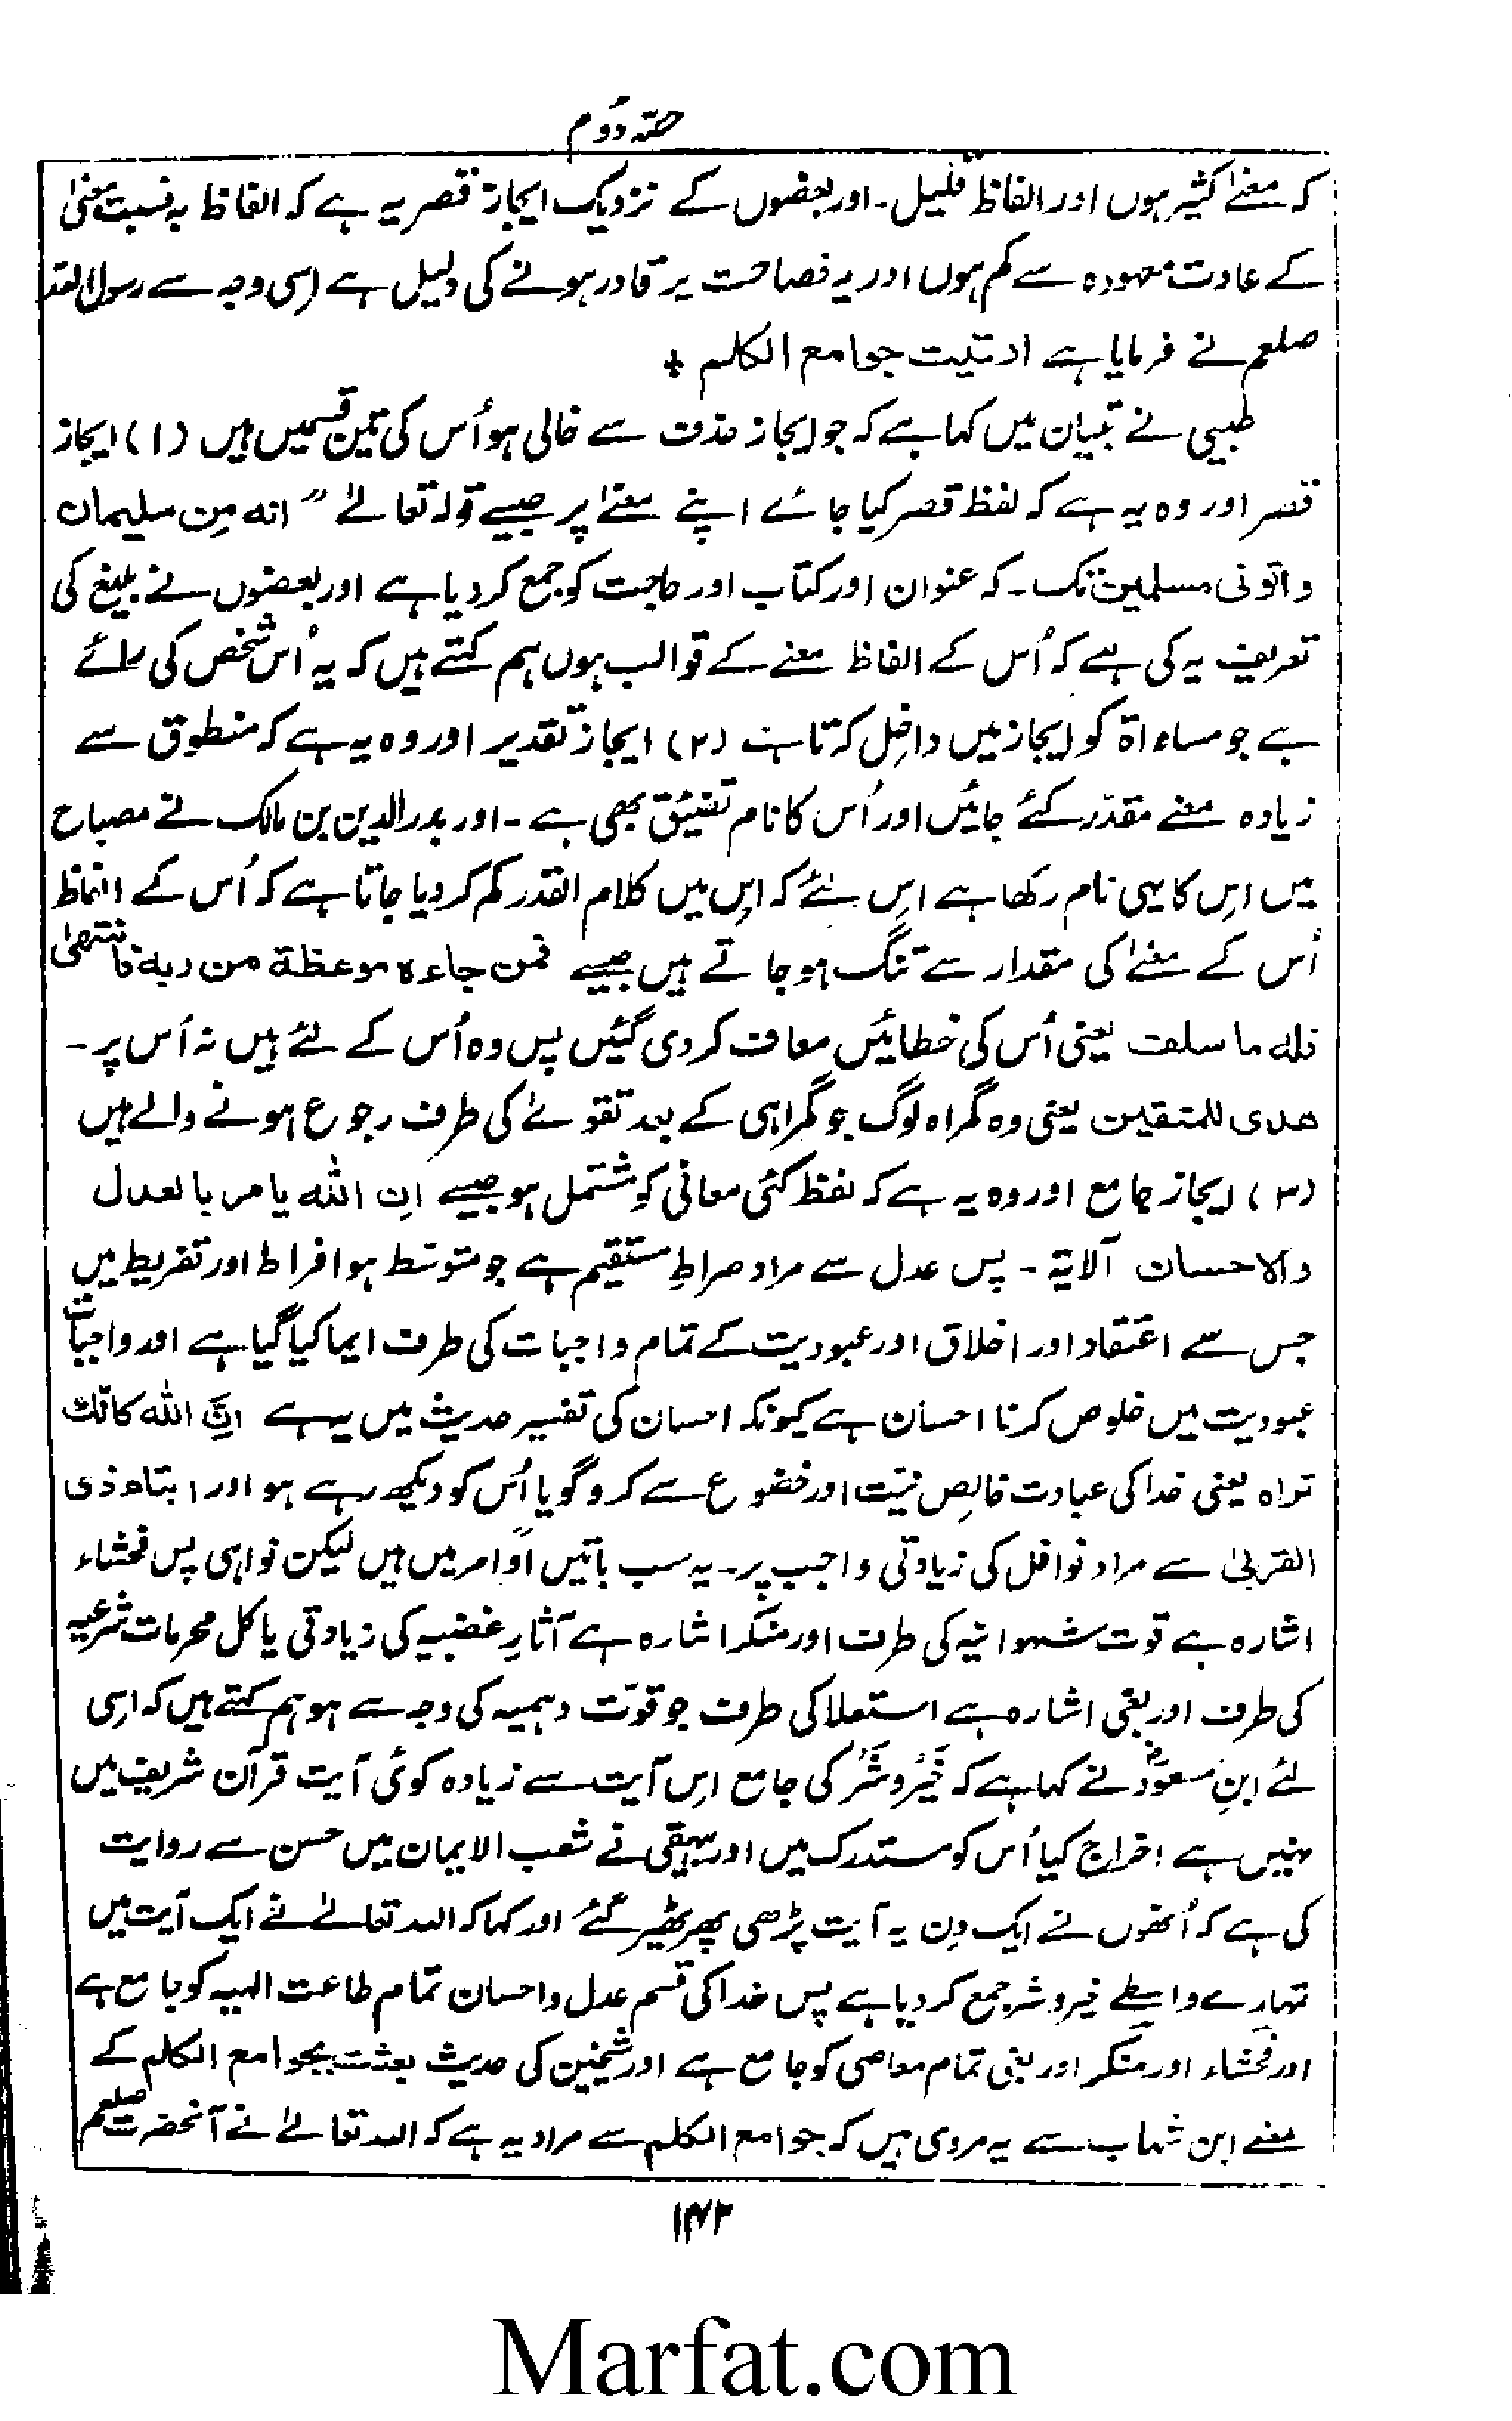 حصہ دوم
کہ معنےٰ کثیر ہوں اور الفاظ قلیل۔ اور بعضوں کے نزدیک ایجاز قصر یہ ہے کہ الفاظ بہ نسبت معنیٰ
کے عادت معہودہ سے کم ہوں اور یہ فصاحت پر قادر ہونے کی دلیل ہے اسی وجہ سے رسول اللہ
صلعم نے فرمایا ہے اوتیت جوامع الکلم +
طیبی نے تبیان میں کہا ہے کہ جو ایجاز حذف سے خالی ہو اُس کی تین قسمیں ہیں (۱) ایجاز
قصر اور وہ یہ ہے کہ لفظ قصر کیا جائے اپنے معنےٰ پر جیسے قولہ تعالےٰ ״ انہ من سلیمان
واتونی مسلمین تک۔ کہ عنوان اور کتاب اور حاجت کو جمع کر دیا ہے اور بعضوں نے بلیغ کی
تعریف یہ کی ہے کہ اُس کے الفاظ معنے کے قوالب ہوں ہم کہتے ہیں کہ یہ اُس شخص کی رائے
ہے جو مساواۃ کو ایجاز میں داخل کرتا ہے (۲) ایجاز تقدیر اور وہ یہ ہے کہ منطوق سے
زیادہ معنے مقدّر کئے جائیں اور اُس کا نام تضییق بھی ہے۔ اور بدرالدین بن مالک نے مصباح
میں اِس کا یہی نام رکھا ہے اِس لئے کہ اِس میں کلام القدر کم کر دیا جاتا ہے کہ اُس کے الفاظ
اُس کے معنےٰ کی مقدار سے تنگ ہو جاتے ہیں جیسے فمن جاءہ موعظۃ من ربہ فانتھیٰ
فلہ ما سلف یعنی اُس کی خطائیں معاف کر دی گئیں پس وہ اُس کے لئے ہیں نہ اُس پر۔
ھدی للمتقین یعنی وہ گمراہ لوگ جو گمراہی کے بعد تقوےٰ کی طرف رجوع ہونے والے ہیں
(۳) ایجاز جامع اور وہ یہ ہے کہ لفظ کئی معانی کو شتمل ہو جیسے اِن اللہ یامر بالعدل
والاحسان آلایۃ۔ پس عدل سے مراد صراطِ مستقیم ہے جو متوسّط ہو افراط اور تفریط میں
جس سے اعتقاد اور اخلاق اور عبودیت کے تمام واجبات کی طرف ایما کیا گیا ہے اور واجبات
عبودیت میں خلوص کرنا احسان ہے کیونکہ احسان کی تفسیر حدیث میں یہ ہے اَنَّ اللہ کانک
تراہ یعنی خدا کی عبادت خالِص نیّت اور خضوع سے کرو گویا اُس کو دیکھ رہے ہو اور ایتاءِ ذی
القربیٰ سے مراد نوافل کی زیادتی واجب پر۔ یہ سب باتیں اوامر میں ہیں لیکن نواہی پس فحشاء
اشارہ ہے قوت شہوانیہ کی طرف اور منکر اشارہ ہے آثارِ غضبیہ کی زیادتی یا کل محرمات شرعیہ
کی طرف اور بغی اشارہ ہے استعلا کی طرف جو قوّت وہمیہ کی وجہ سے ہو ہم کہتے ہیں کہ اِسی
لئے ابنِ مسعودؓ نے کہا ہے کہ خَیْر و شَر کی جامع اِس آیت سے زیادہ کوئی آیت قرآن شریف میں
نہیں ہے اخراج کیا اُس کو مستدرک میں اور بیہقی نے شعب الایمان میں حسن سے روایت
کی ہے کہ اُنھوں نے ایک دِن یہ آیت پڑھی پھر ٹھیر گئے اور کہا کہ اللہ تعالےٰ نے ایک آیت میں
تمہارے واسطے خیر و شر جمع کر دیا ہے پس خدا کی قسم عدل و احسان تمام طاعت الٰہیہ کو جامع ہے
اور فحشاء اور منکر اور بغی تمام معاصی کو جامع ہے اور شیخین کی حدیث بعثت بجوامع الکلم کے
معنے ابن شہاب سے یہ مروی ہیں کہ جوامع الکلم سے مراد یہ ہے کہ اللہ تعالےٰ نے آنحضرت صلعم
۱۴۲
Marfat.com